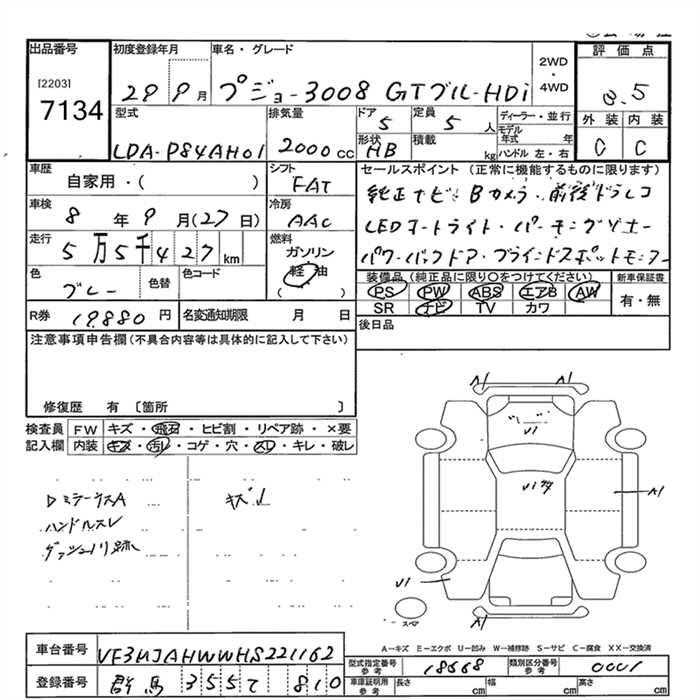 出品番号 初度登録年月 車名・グレード 2WD・4WD 評価点
[2203] 7134 29 9月 プジョー3008 GTブルーHDi 3.5
型式 排気量 ドア 定員 ディーラー・並行 外装 内装
LDA-P84AH01 2000cc 5 5人 モデル年式 年 C C
形状 HB 積載 kg ハンドル 左・右
車歴 シフト セールスポイント(正常に機能するものに限ります)
自家用・( ) FAT 純正ナビ・Bカメラ・前後ドラレコ
車検 冷房
8年9月(27日) AAC LEDオートライト・パーキングソナー
走行 燃料
5万5千427km ガソリン パワーバックドア・ブラインドスポットモニター
色 色替 色コード 軽油 装備品(純正品に限り○をつけてください) 新車保証書
グレー ( ) PS PW ABS エアB AW 有・無
SR ナビ TV カワ
R券 19,880円 名変通知期限 月 日 後日品
注意事項申告欄(不具合内容等は具体的に記入して下さい)
修復歴 有 〔箇所 〕
検査員 FW キズ・飛石・ヒビ割・リペア跡・×要
記入欄 内装 キズ・汚レ・コゲ・穴・スレ・キレ・破レ
DミラーウスA キズ
ハンドルスレ
A1 A1
U1
A1
U1
A1
A-キズ E-エクボ U-凹み W-補修跡 S-サビ C-腐食 XX-交換済
車台番号 VF3MJAHWWHS221162 型式指定番号 参考 18668 類別区分番号 参考 0001
登録番号 群馬 355 て 810 車庫証明用 参考 長さ cm 幅 cm 高さ cm